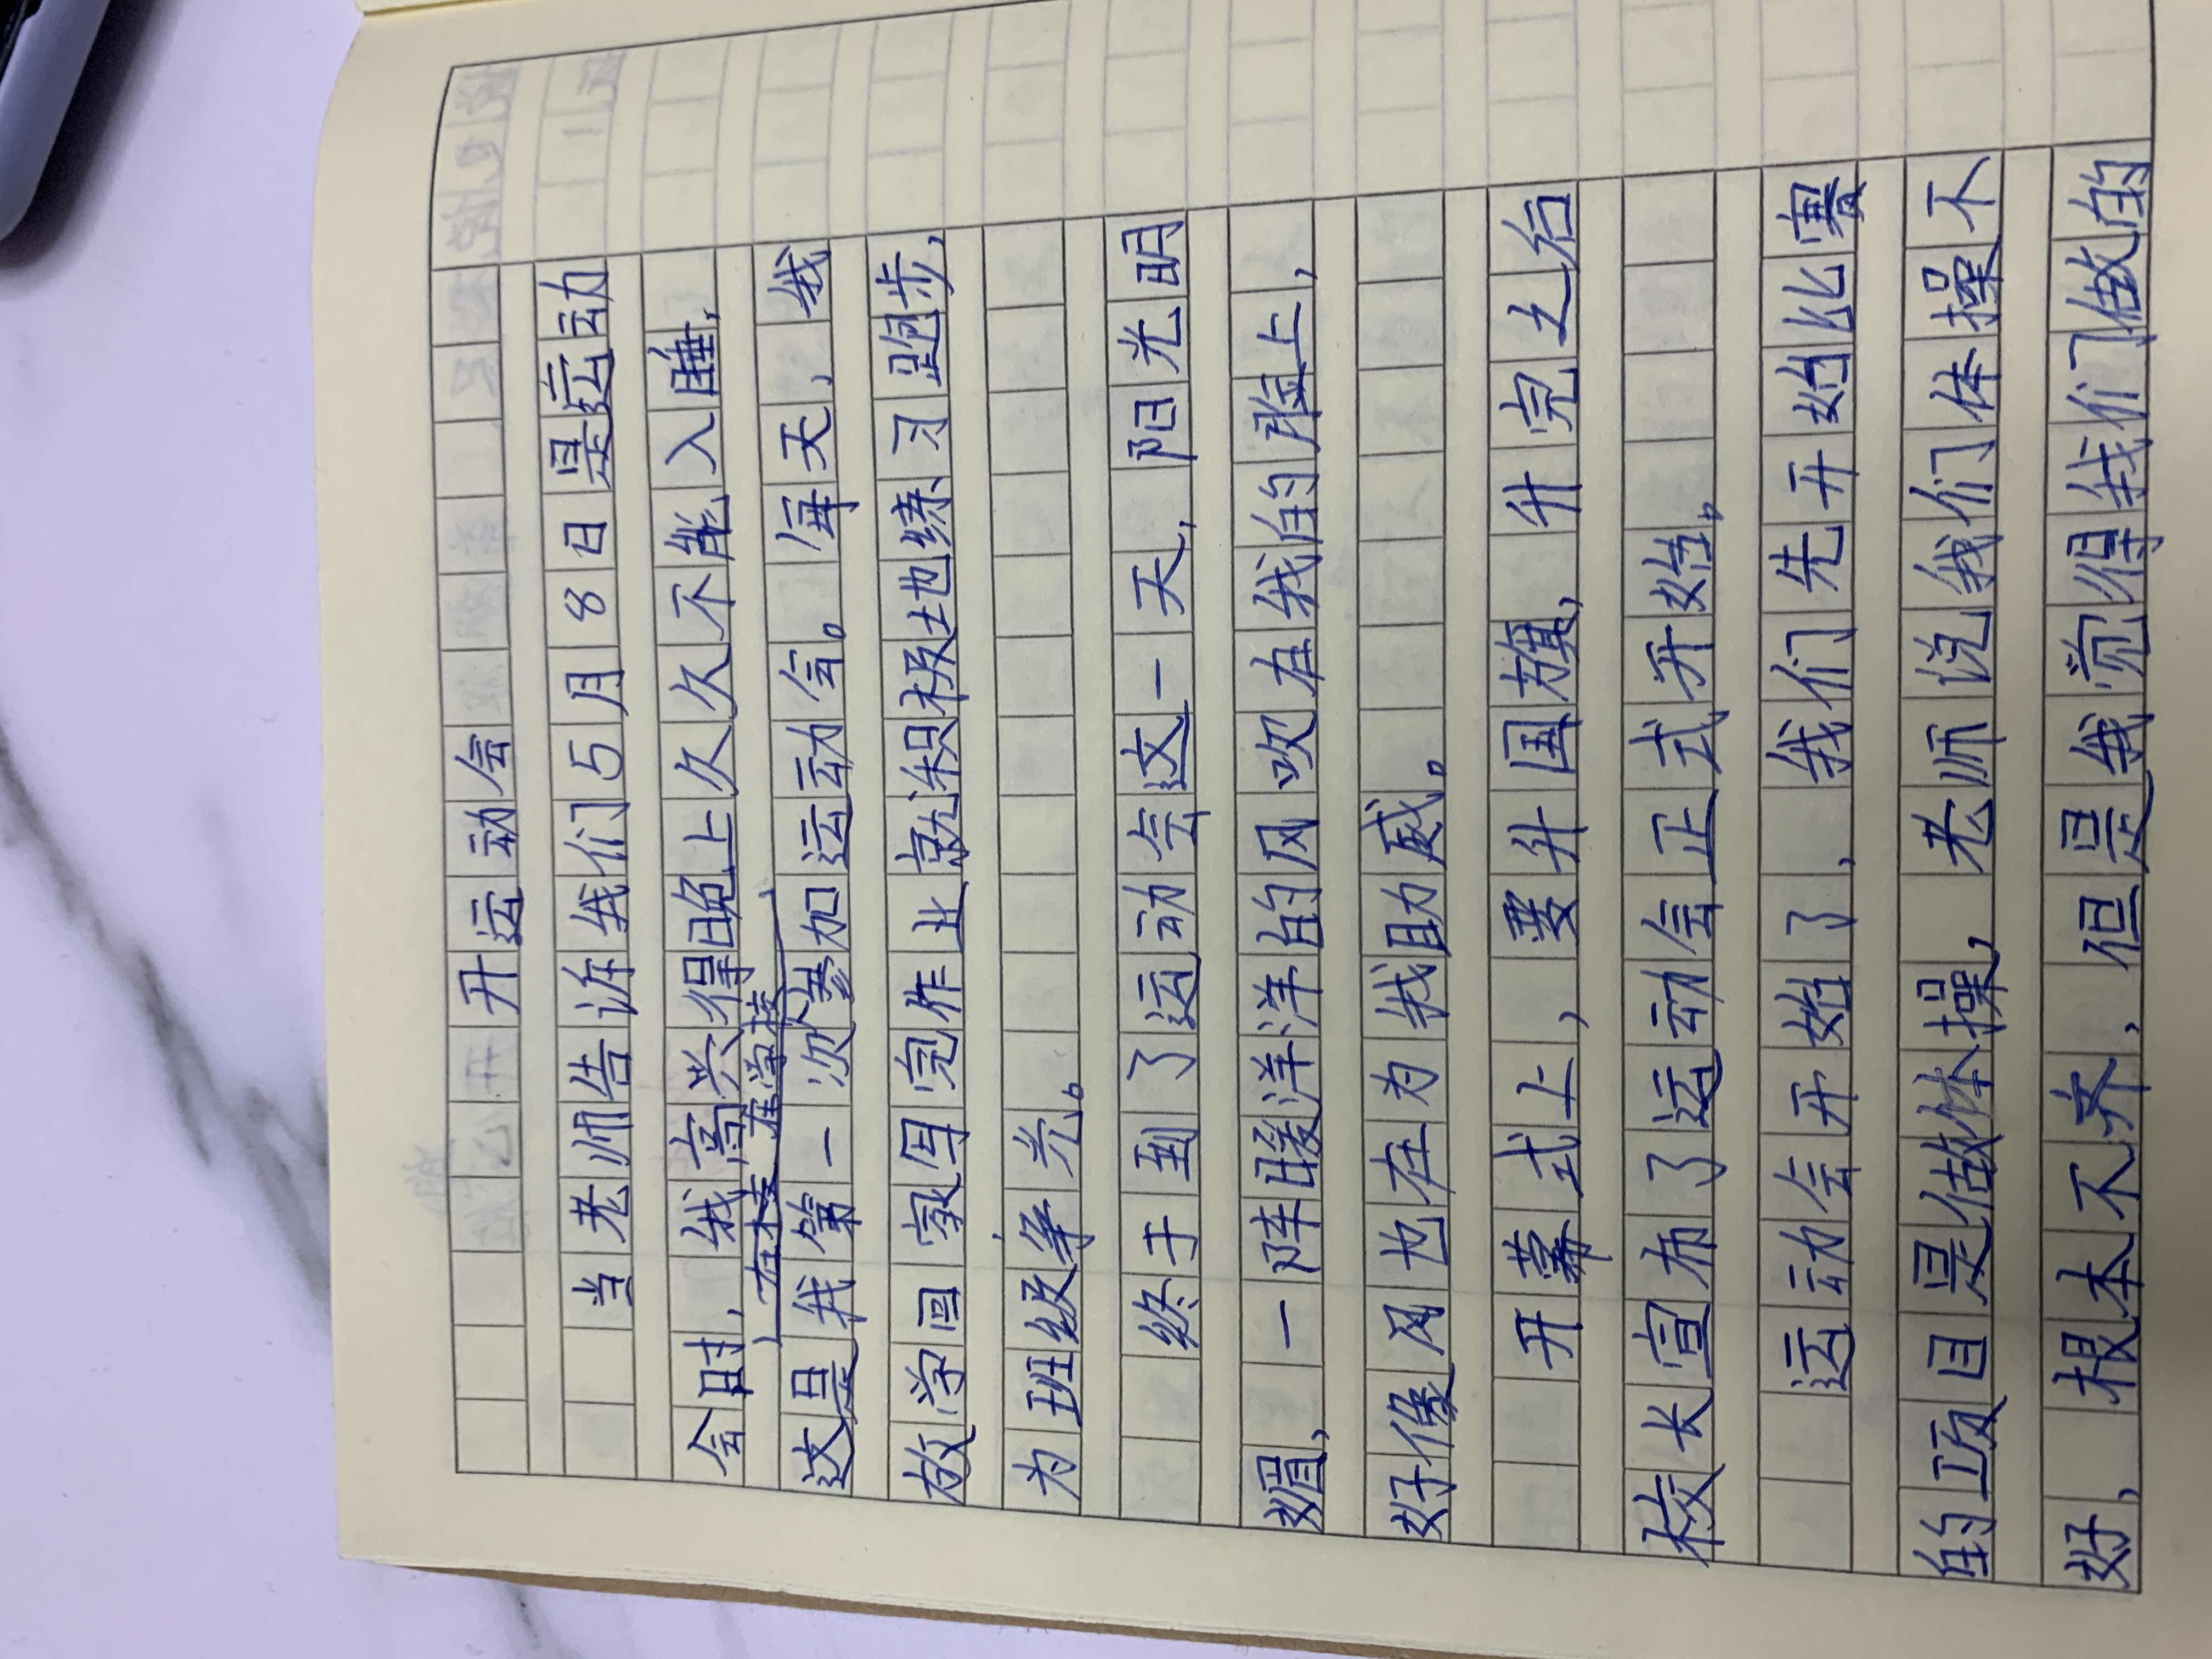 开运动会
当老师告诉我们5月8日是运动
会时，我高兴得晚上久久不能入睡，
在学校
这是我第一次参加运动会。每天，我
放学回家写完作业就积极地练习跑步，
为班级争光。
终于到了运动会这一天，阳光明
媚，一阵暖洋洋的风吹在我的脸上，
好像风也在为我助威。
开幕式上，要升国旗，升完之后
校长宣布了运动会正式开始。
运动会开始了，我们先开始比赛
的项目是做体操，老师说我们体操不
好，根本不齐，但是我觉得我们做的